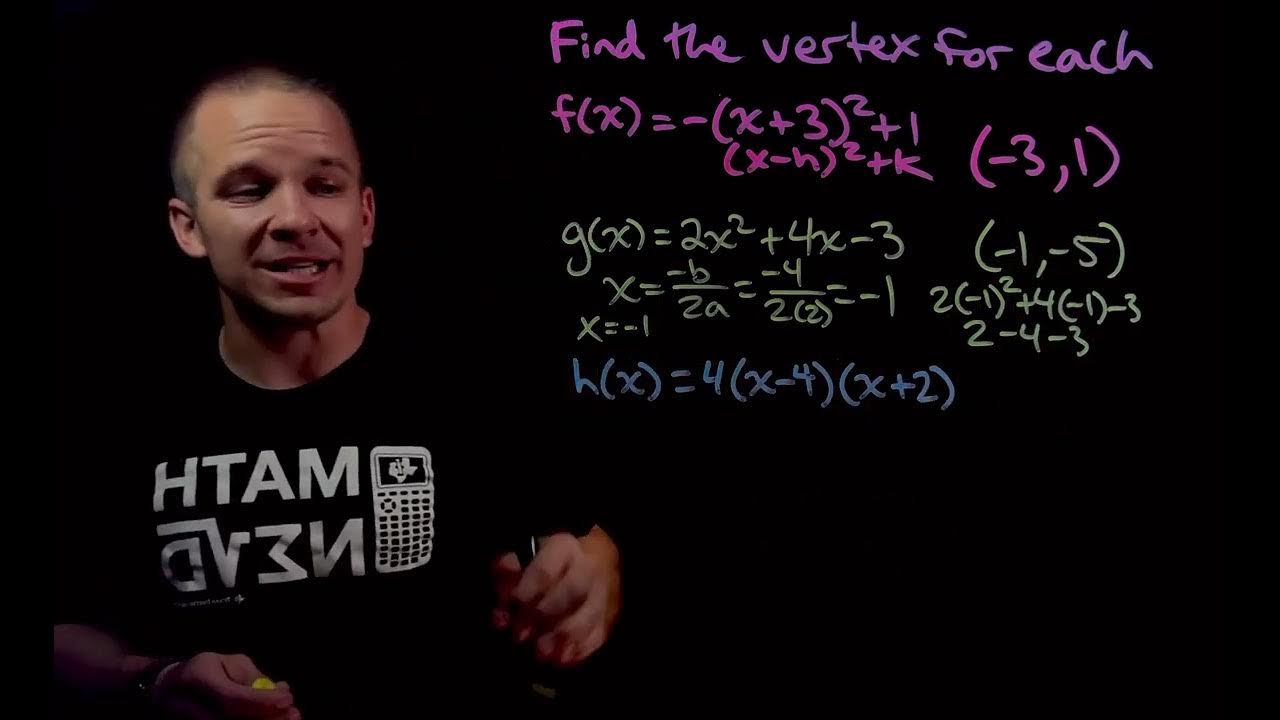 Find the vertex for each
f(x) = -(x+3)² + 1
(x-h)² + k
(-3, 1)
g(x) = 2x² + 4x - 3
(-1, -5)
x = -b/2a = -4/2(2) = -1
2(-1)² + 4(-1) - 3
x = -1
2 - 4 - 3
h(x) = 4(x-4)(x+2)
MATH